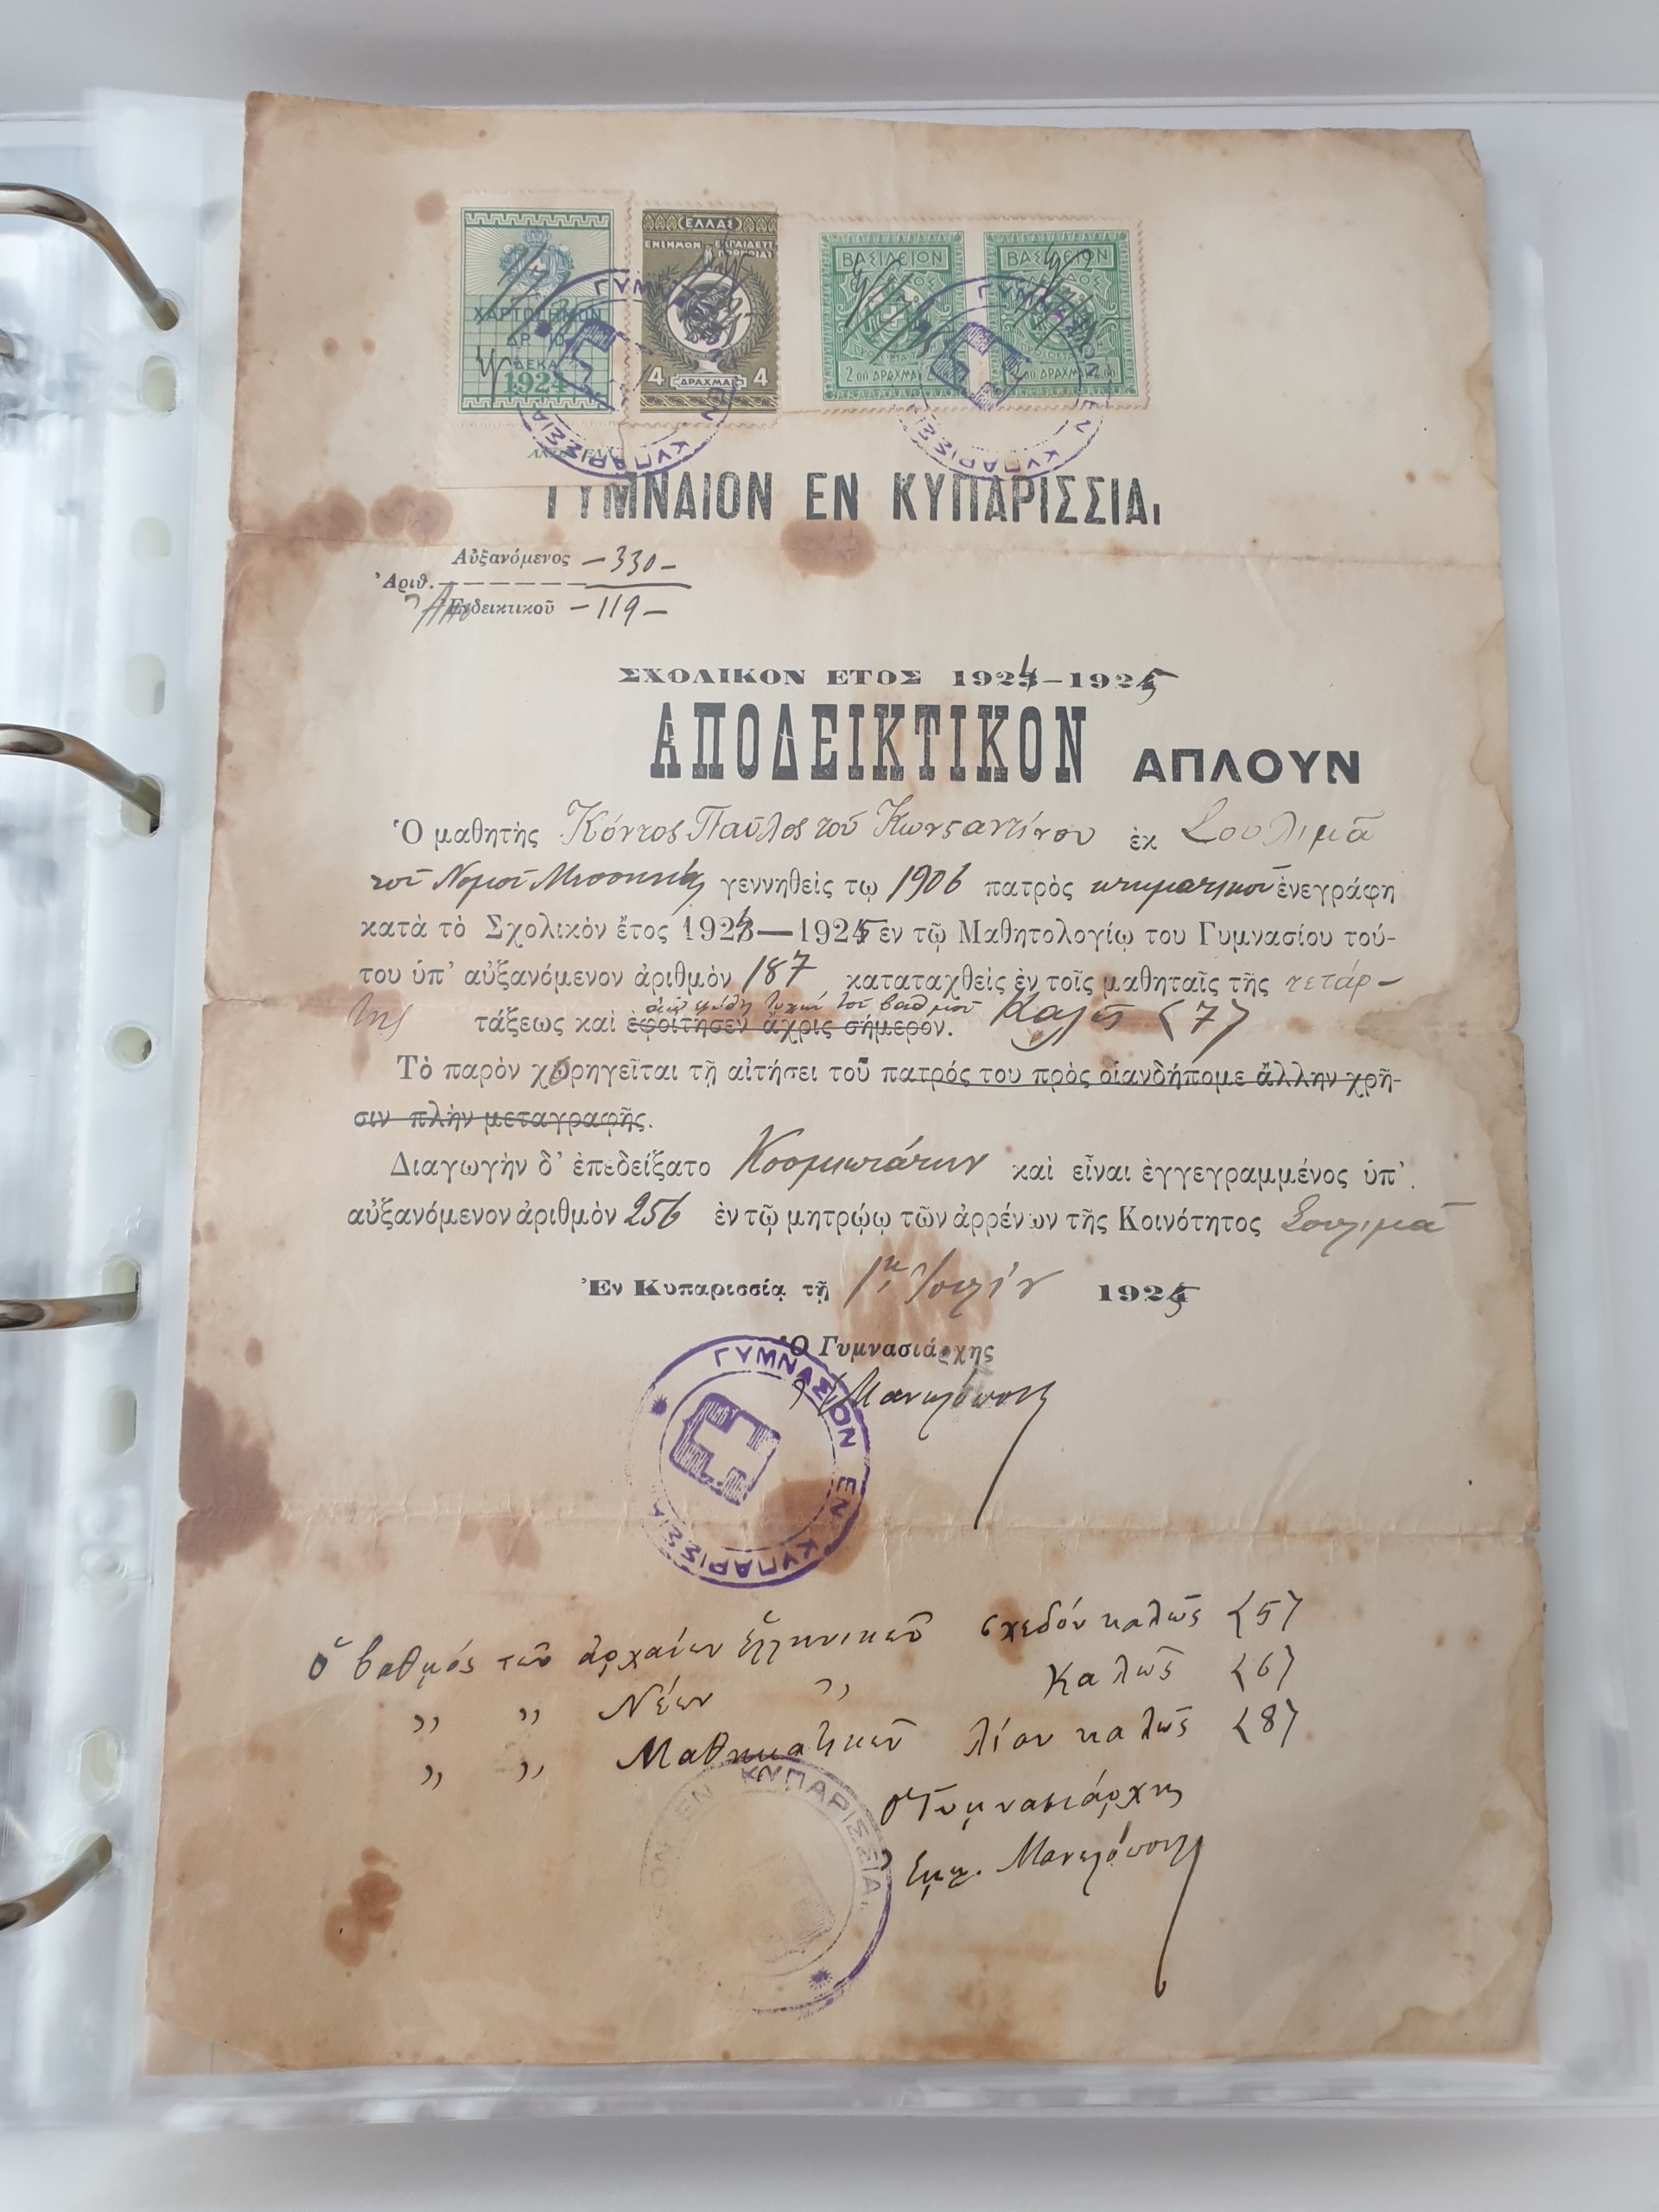 ΧΑΡΤΟΣΗΜΟΝ
ΔΡ 10
ΔΕΚΑ
1924
ΕΛΛΑΣ
ΕΝΣΗΜΟΝ ΕΚΠΑΙΔΕΥΤ
4 ΔΡΑΧΜΑΙ 4
ΒΑΣΙΛΕΙΟΝ
2.00 ΔΡΑΧΜΑΙ
ΒΑΣΙΛΕΙΟΝ
ΔΡΑΧΜΑΙ
ΓΥΜΝΑΙΟΝ ΕΝ ΚΥΠΑΡΙΣΣΙΑι
Αὐξανόμενος – 330 –
Ἀριθ.
Ἐνδεικτικοῦ – 119 –
ΣΧΟΛΙΚΟΝ ΕΤΟΣ 1924–1925
ΑΠΟΔΕΙΚΤΙΚΟΝ ΑΠΛΟΥΝ
Ὁ μαθητὴς Κόντος Παῦλος τοῦ Κωνσταντίνου ἐκ Σουλιμᾶ
τοῦ Νομοῦ Μεσσηνίας γεννηθεὶς τῳ 1906 πατρὸς κτηματικοῦ ἐνεγράφη
κατὰ τὸ Σχολικὸν ἔτος 1924—1925 ἐν τῷ Μαθητολογίῳ του Γυμνασίου τού-
του ὑπ' αὐξανόμενον ἀριθμὸν 187 καταταχθεὶς ἐν τοῖς μαθηταῖς τῆς τετάρ-
της τάξεως καὶ ἐφοίτησεν ἄχρις σήμερον. τοῦ βαθμοῦ Καλῶς (7)
Τὸ παρὸν χορηγεῖται τῇ αἰτήσει τοῦ πατρός του πρὸς οἱανδήπομε ἄλλην χρῆ-
σιν πλὴν μεταγραφῆς.
Διαγωγὴν δ' ἐπεδείξατο Κοσμιωτάτην καὶ εἶναι ἐγγεγραμμένος ὑπ'
αὐξανόμενον ἀριθμὸν 256 ἐν τῷ μητρῴῳ τῶν ἀρρένων τῆς Κοινότητος Σουλιμᾶ
Ἐν Κυπαρισσίᾳ τῇ 1ῃ 1925
Ὁ Γυμνασιάρχης
ΓΥΜΝΑΣΙΟΝ ΕΝ ΚΥΠΑΡΙΣΣΙΑ
Ὁ βαθμός τῶν ἀρχαίων ἑλληνικῶν σχεδόν καλῶς (5)
,, ,, Νέων ,, Καλῶς (6)
,, ,, Μαθηματικῶν λίαν καλῶς (8)
Ὁ Γυμνασιάρχης
ΕΝ ΚΥΠΑΡΙΣΣΙΑι